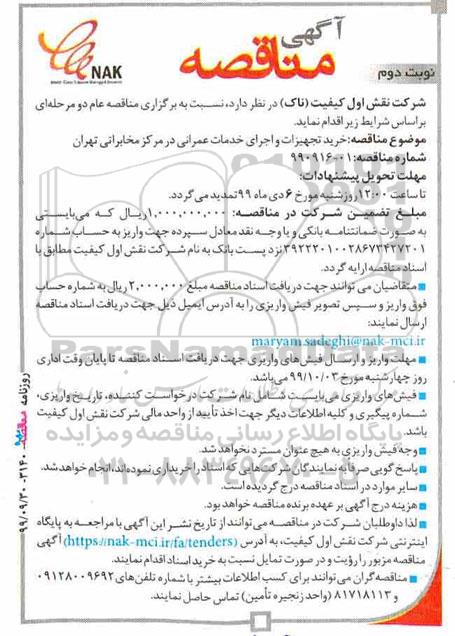 آگهی
مناقصه
NAK
نوبت دوم
شرکت نقش اول کیفیت (ناک) در نظر دارد، نسبت به برگزاری مناقصه عام دو مرحله‌ای
براساس شرایط زیر اقدام نماید.
موضوع مناقصه: خرید تجهیزات و اجرای خدمات عمرانی در مرکز مخابراتی تهران
شماره مناقصه: ۰۱-۹۹۰۹۱۶
مهلت تحویل پیشنهادات:
تا ساعت ۱۲:۰۰ روز شنبه مورخ ۶ دی ماه ۹۹ تمدید می گردد.
مبلغ تضمین شرکت در مناقصه: ۱,۰۰۰,۰۰۰,۰۰۰ ریال که می‌بایستی
به صورت ضمانتنامه بانکی و یا وجه نقد معادل سپرده جهت واریز به حساب شماره
۳۹۲۲۲۰۱۰۰۲۸۶۷۳۴۲۷۲۰۱ نزد پست بانک به نام شرکت نقش اول کیفیت مطابق با
اسناد مناقصه ارایه گردد.
■ متقاضیان می توانند جهت دریافت اسناد مناقصه مبلغ ۲,۰۰۰,۰۰۰ ریال به شماره حساب
فوق واریز و سپس تصویر فیش واریزی را به آدرس ایمیل ذیل جهت دریافت اسناد مناقصه
ارسال نمایند:
maryam.sadeghi@nak-mci.ir
■ مهلت واریز و ارسال فیش‌های واریزی جهت دریافت اسناد مناقصه تا پایان وقت اداری
روز چهارشنبه مورخ ۹۹/۱۰/۰۳ می‌باشد.
■ فیش‌های واریزی می‌بایست شامل نام شرکت درخواست کننده، تاریخ واریزی،
شماره پیگیری و کلیه اطلاعات دیگر جهت اخذ تأیید از واحد مالی شرکت نقش اول کیفیت
باشد.
■ وجه فیش واریزی به هیچ عنوان مسترد نخواهد شد.
■ پاسخ گویی صرفا به نمایندگان شرکت‌هایی که اسناد را خریداری نموده‌اند، انجام خواهد شد.
■ سایر موارد در اسناد مناقصه درج گردیده است.
■ هزینه درج آگهی بر عهده برنده مناقصه خواهد بود.
■ لذا داوطلبان شرکت در مناقصه می‌توانند از تاریخ نشر این آگهی با مراجعه به پایگاه
اینترنتی شرکت نقش اول کیفیت، به آدرس (https://nak-mci.ir/fa/tenders) آگهی
مناقصه مزبور را رؤیت و در صورت تمایل نسبت به خرید اسناد اقدام نمایند.
■ مناقصه گران می‌توانند برای کسب اطلاعات بیشتر با شماره تلفن‌های ۰۹۱۲۸۰۰۹۶۹۲
و ۸۱۷۱۸۱۱۳ (واحد زنجیره تأمین) تماس حاصل نمایند.
روزنامه
۹۹/۰۹/۳۰-۳۱۴۰
ParsNamadData
پایگاه اطلاع رسانی مناقصه و مزایده